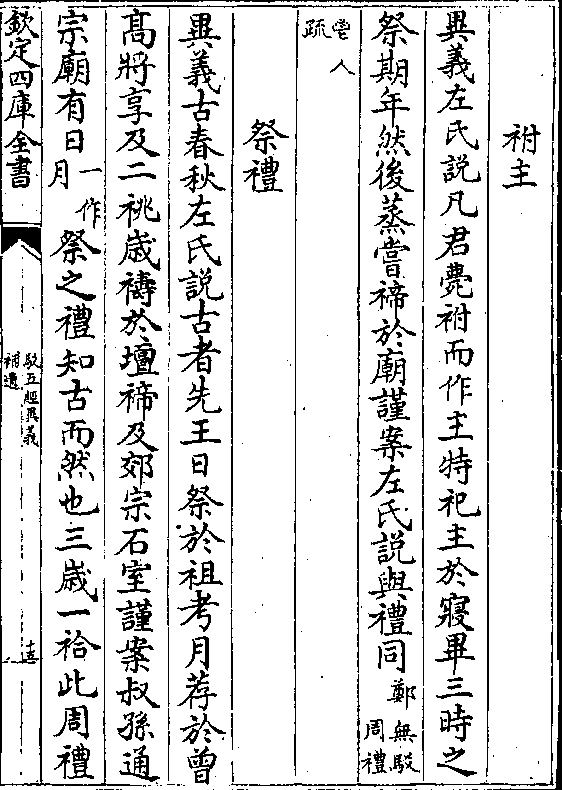 祔主
異義左氏説凡君薨祔而作主特祀主於寢畢三時之
祭期年然後蒸嘗禘於廟謹案左氏説與禮同鄭無駁周禮
鬯人疏
祭禮
異義古春秋左氏説古者先王日祭於祖考月荐於曾
髙將享及二祧歳禱於壇禘及郊宗石室謹案叔孫通
宗廟有日一作月祭之禮知古而然也三歳一祫此周禮
欽定四庫全書
駁五經異義補遺
十五